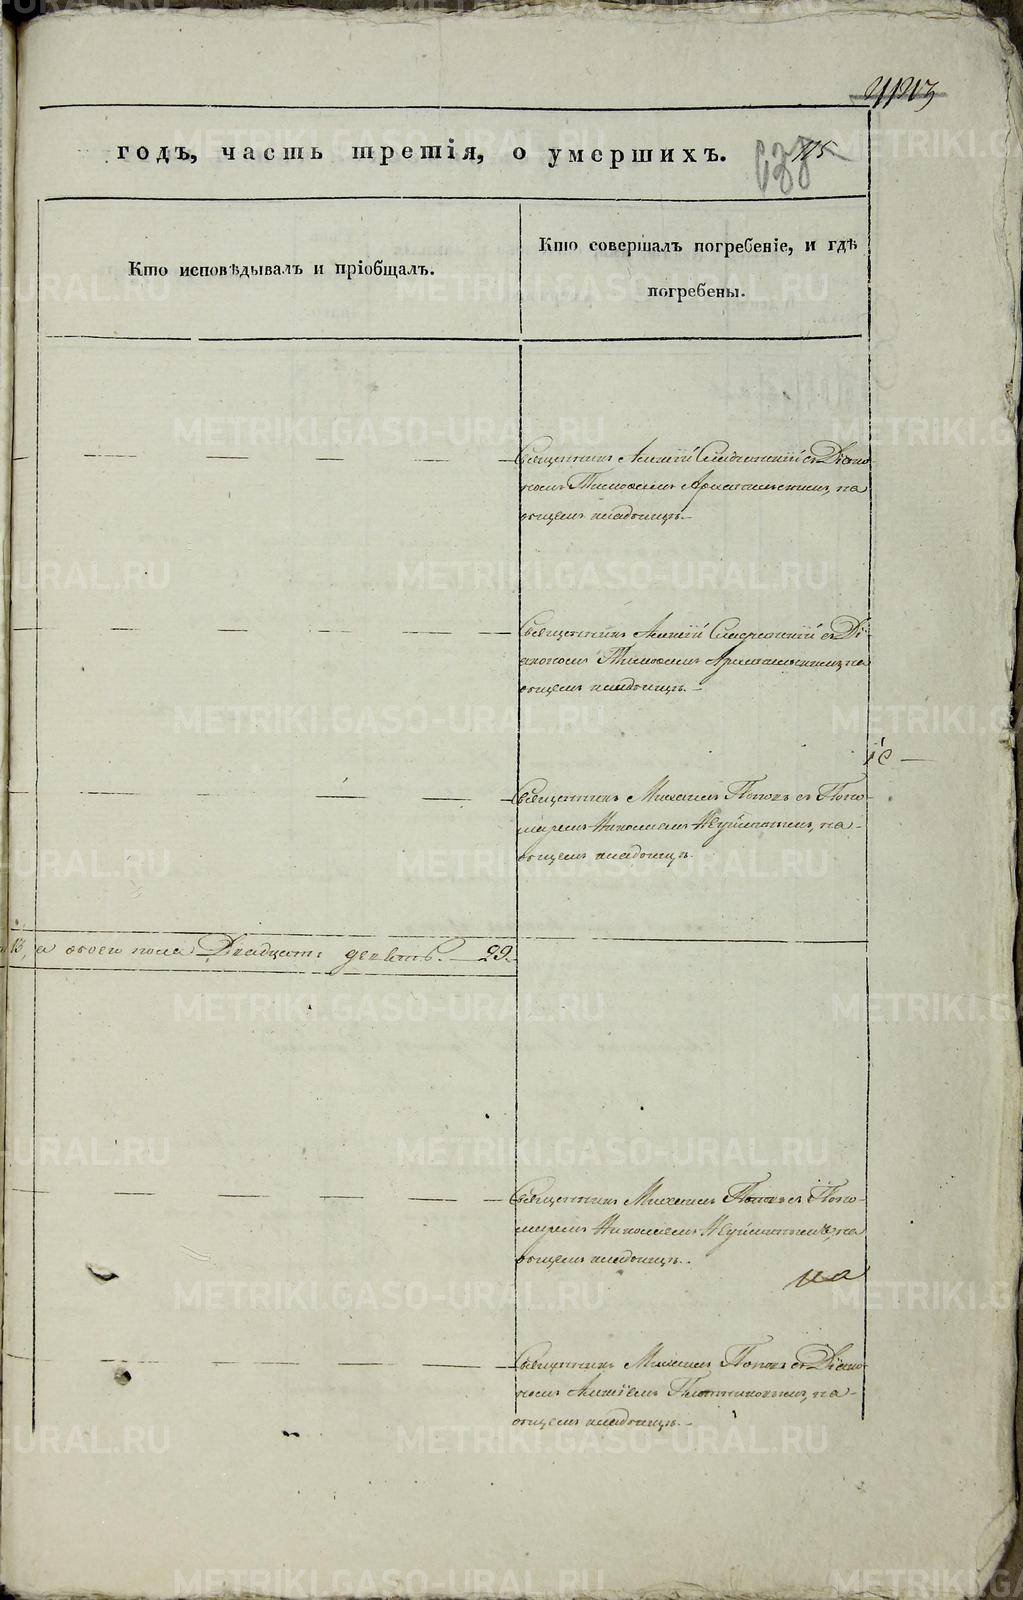 годъ, часть третія, о умершихъ.
115
138
Кто исповѣдывалъ и пріобщалъ.
Кто совершалъ погребеніе, и гдѣ
погребены.
Священникъ Алексій Смородинскій съ Діако-
номъ Тимофеемъ Архангельскимъ, на
общемъ кладбищѣ.
Священникъ Алексій съ Ді-
акономъ Тимофеемъ Архангельскимъ, на
общемъ кладбищѣ.
Священникъ Михаилъ Поповъ съ Поно-
маремъ Николаемъ на
общемъ кладбищѣ.
13, а обоего пола Двадцать девять. 29.
Священникъ Михаилъ Поповъ съ Поно-
маремъ Николаемъ на
общемъ кладбищѣ.
Священникъ Михаилъ Поповъ съ Діако-
номъ Алексіемъ Плотниковымъ, на
общемъ кладбищѣ.
METRIKI.GASO-URAL.RU